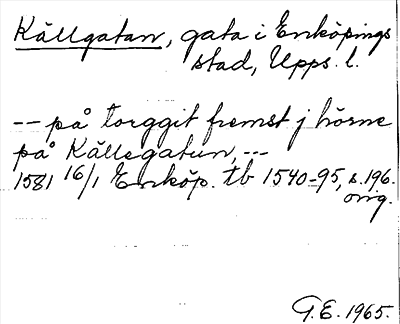 Källgatan, gata i Enköpings
stad, Upps. l.
-- på torggit fremst j hörne
på Källegatun, --
1581 16/1 Enköp. tb 1540-95, s. 196.
orig.
G.E. 1965.